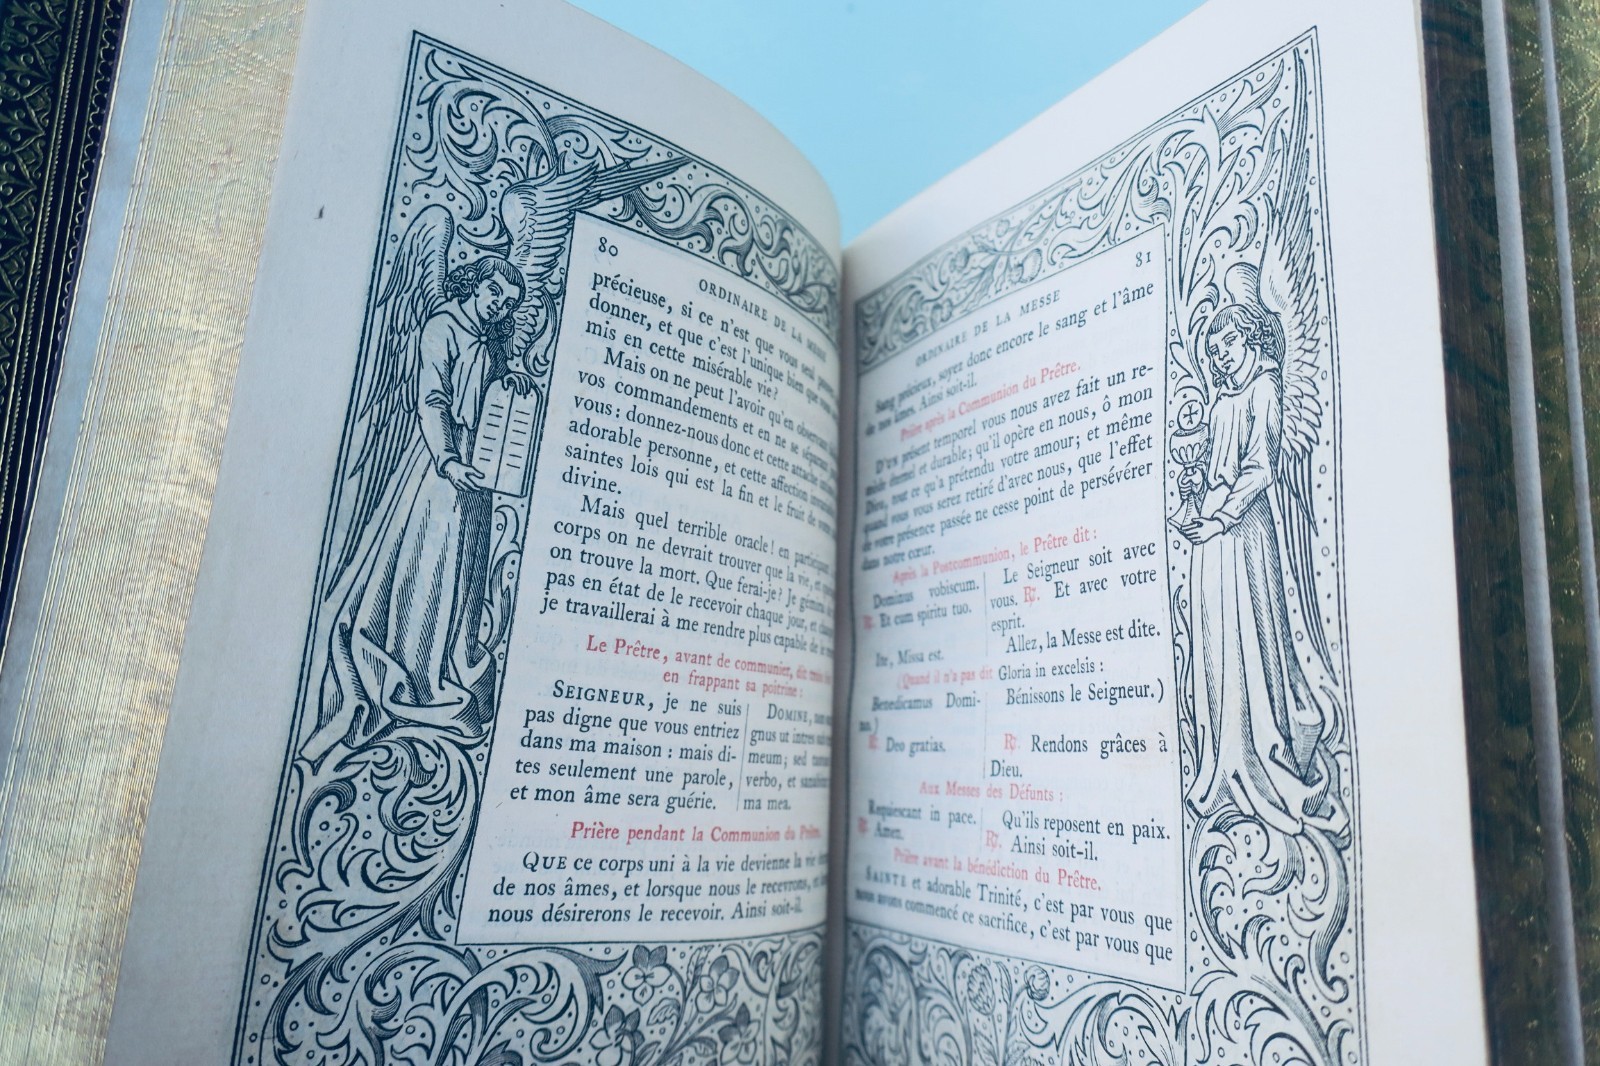 80
ORDINAIRE DE LA MESSE
précieuse, si ce n'est que vous seul
donner, et que c'est l'unique bien que
mis en cette misérable vie?
Mais on ne peut l'avoir qu'en observant
vos commandements et en ne se séparant
vous: donnez-nous donc et cette attache
adorable personne, et cette affection
saintes lois qui est la fin et le fruit de
divine.
Mais quel terrible oracle! en participant
corps on ne devrait trouver que la vie, et
on trouve la mort. Que ferai-je? Je gémirai
pas en état de le recevoir chaque jour, et
je travaillerai à me rendre plus capable de le
Le Prêtre, avant de communier, dit trois
en frappant sa poitrine:
SEIGNEUR, je ne suis
pas digne que vous entriez
dans ma maison: mais di-
tes seulement une parole,
et mon âme sera guérie.
DOMINE, non
gnus ut intres sub
meum; sed tantum
verbo, et sanabitur
ma mea.
Prière pendant la Communion du Prêtre.
QUE ce corps uni à la vie devienne la vie
de nos âmes, et lorsque nous le recevrons, et
nous désirerons le recevoir. Ainsi soit-il.
81
ORDINAIRE DE LA MESSE
Sang précieux, soyez donc encore le sang et l'âme
de nos âmes. Ainsi soit-il.
Prière après la Communion du Prêtre.
D'UN présent temporel vous nous avez fait un re-
mède éternel et durable; qu'il opère en nous, ô mon
Dieu, tout ce qu'a prétendu votre amour; et même
quand vous vous serez retiré d'avec nous, que l'effet
de votre présence passée ne cesse point de persévérer
dans notre cœur.
Après la Postcommunion, le Prêtre dit:
Dominus vobiscum.
℟. Et cum spiritu tuo.
Ite, Missa est.
Le Seigneur soit avec
vous. ℟. Et avec votre
esprit.
Allez, la Messe est dite.
(Quand il n'a pas dit Gloria in excelsis:
Benedicamus Domi-
no.)
℟. Deo gratias.
Bénissons le Seigneur.)
℟. Rendons grâces à
Dieu.
Aux Messes des Défunts:
Requiescant in pace.
℟. Amen.
Qu'ils reposent en paix.
℟. Ainsi soit-il.
Prière avant la bénédiction du Prêtre.
SAINTE et adorable Trinité, c'est par vous que
nous avons commencé ce sacrifice, c'est par vous que